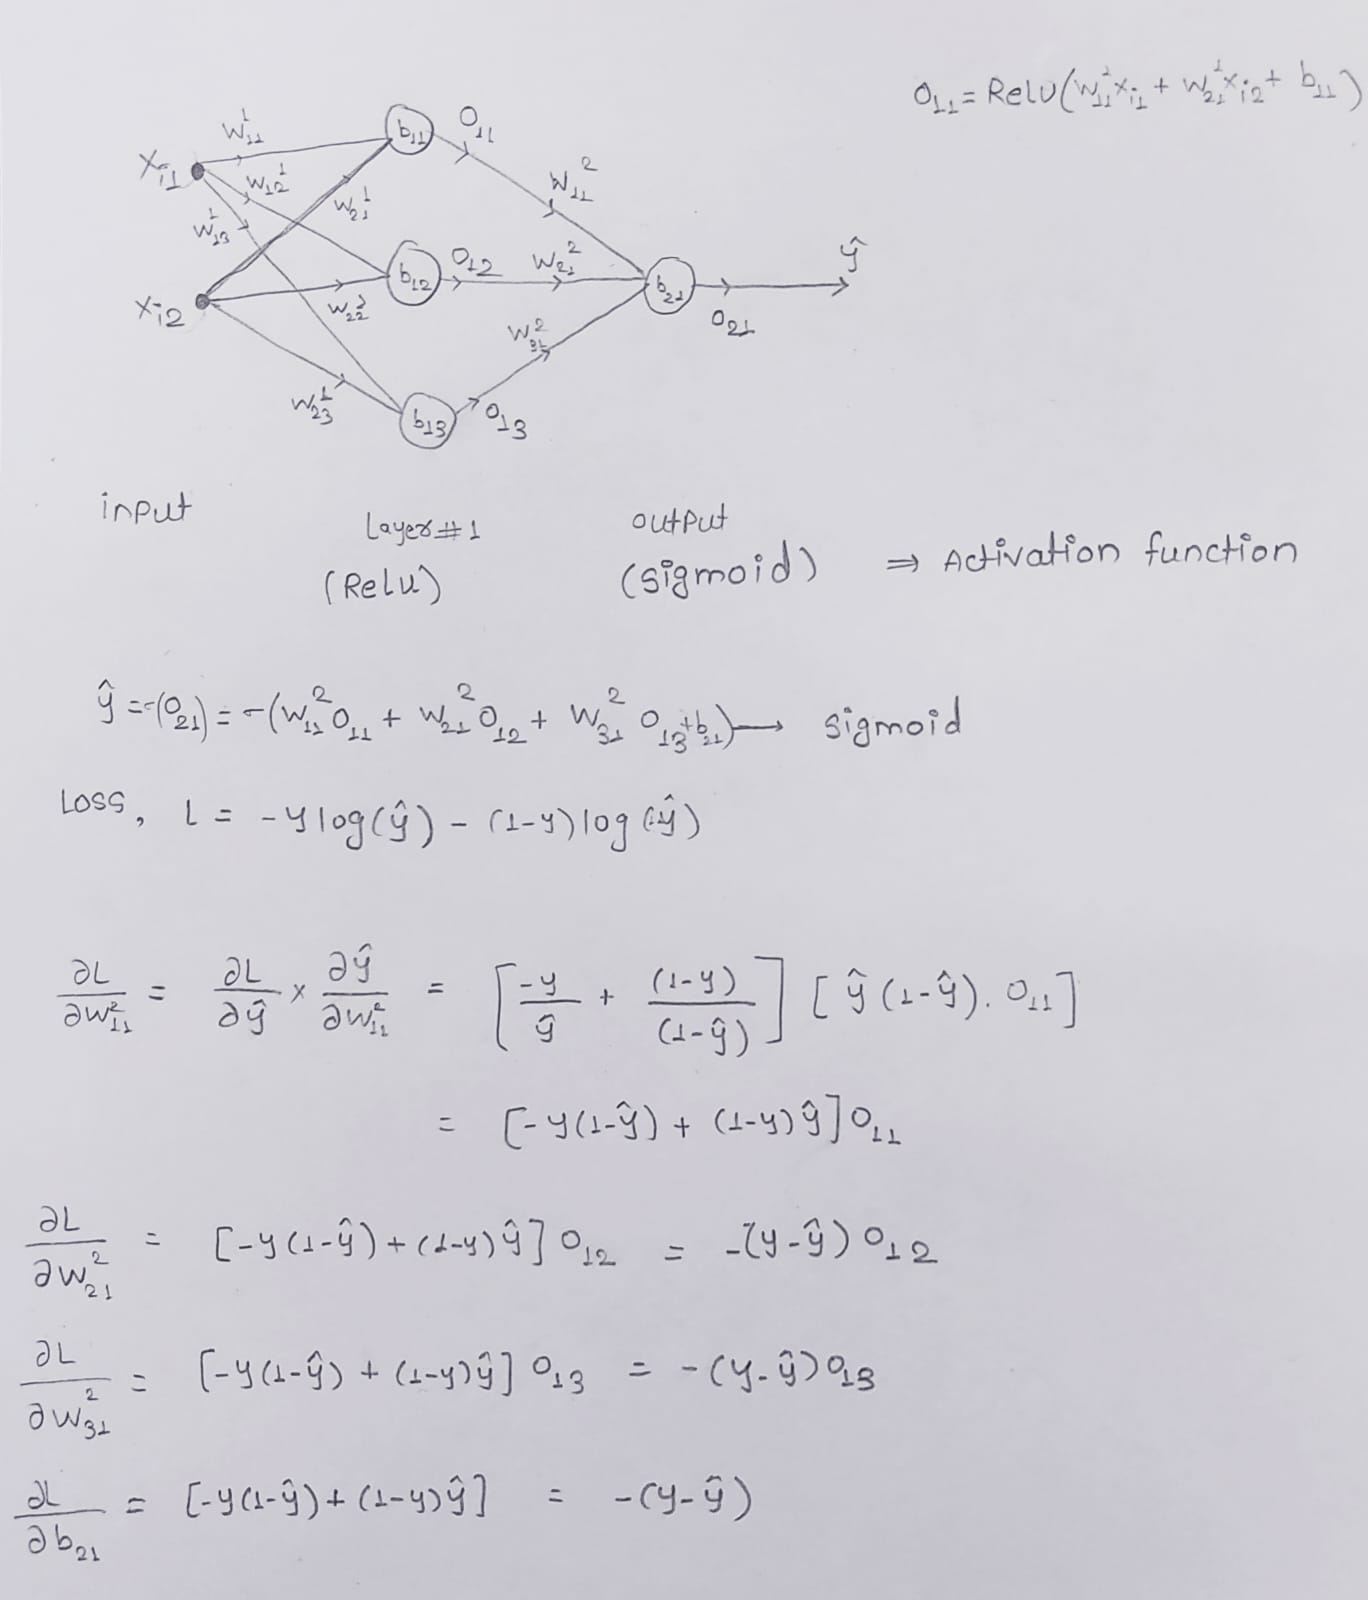 O₁₁ = Relu(W₁₁¹xᵢ₁ + W₂₁¹xᵢ₂ + b₁₁)
xᵢ₁ W₁₁¹ b₁₁ O₁₁
W₁₂¹ W₂₁¹ W₁₁²
W₁₃¹
b₁₂ O₁₂ W₂₁² b₂₁ ŷ
xᵢ₂ W₂₂¹ W₃₁² O₂₁
W₂₃¹ b₁₃ O₁₃
input Layer#1 output
(Relu) (sigmoid) ⇒ Activation function
ŷ = σ(O₂₁) = σ(W₁₁²O₁₁ + W₂₁²O₁₂ + W₃₁²O₁₃ + b₂₁) → sigmoid
Loss, L = -y log(ŷ) - (1-y) log(1-ŷ)
∂L/∂W₁₁² = ∂L/∂ŷ × ∂ŷ/∂W₁₁² = [-y/ŷ + (1-y)/(1-ŷ)] [ŷ(1-ŷ). O₁₁]
= [-y(1-ŷ) + (1-y)ŷ] O₁₁
∂L/∂W₂₁² = [-y(1-ŷ) + (1-y)ŷ] O₁₂ = -(y-ŷ) O₁₂
∂L/∂W₃₁² = [-y(1-ŷ) + (1-y)ŷ] O₁₃ = -(y-ŷ) O₁₃
∂L/∂b₂₁ = [-y(1-ŷ) + (1-y)ŷ] = -(y-ŷ)